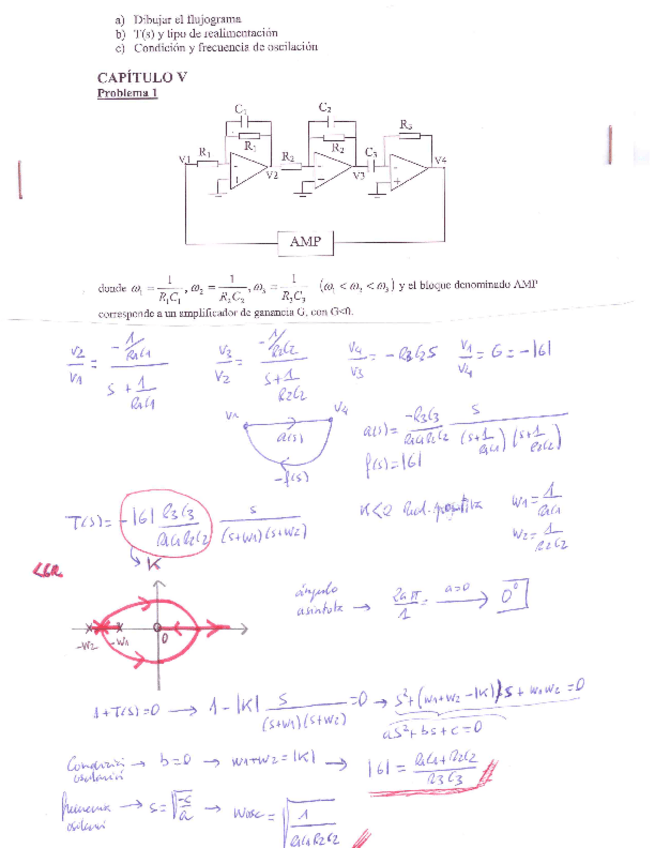 a) Dibujar el flujograma
b) T(s) y tipo de realimentación
c) Condición y frecuencia de oscilación
CAPÍTULO V
Problema 1
C1 C2
R1 R2 R3
V1 R1 V2 R2 V3 C3 V4
AMP
donde ω₁ = 1/(R₁C₁), ω₂ = 1/(R₂C₂), ω₃ = 1/(R₃C₃) (ω₁ < ω₂ < ω₃) y el bloque denominado AMP
corresponde a un amplificador de ganancia G, con G<0.
V2/V1 = (-1/R1C1)/(s + 1/R1C1) V3/V2 = (-1/R2C2)/(s + 1/R2C2) V4/V3 = -R3C3S V1/V4 = G = -|G|
V1 V4
a(s)
-f(s)
a(s) = -R3C3/(R1C1R2C2) s/((s + 1/R1C1)(s + 1/R2C2))
f(s) = |G|
T(s) = -|G| R3C3/(R1C1R2C2) s/((s+w1)(s+w2)) K<0 Real. positiva w1 = 1/R1C1
w2 = 1/R2C2
K
LGR
-w2 -w1 0
ángulo asíntota → 2aπ/1 = a=0 → 0°
1+T(s)=0 → 1 - |K| s/((s+w1)(s+w2)) = 0 → s²+(w1+w2-|K|)s + w1w2 = 0
as²+bs+c=0
Condición oscilación → b=0 → w1+w2=|K| → |G| = (R1C1+R2C2)/(R3C3)
frecuencia → s=√(-c/a) → wosc = √(1/(R1C1R2C2))